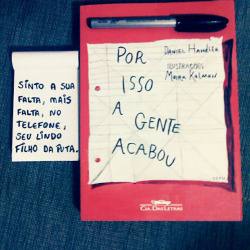 SINTO A SUA
FALTA, MAIS
FALTA, NO
TELEFONE,
SEU LINDO
FILHO DA PUTA.
DANIEL HANDLER
ILUSTRAÇÕES
MAIRA KALMAN
POR
ISSO
A
GENTE
ACABOU
CIA. DAS LETRAS